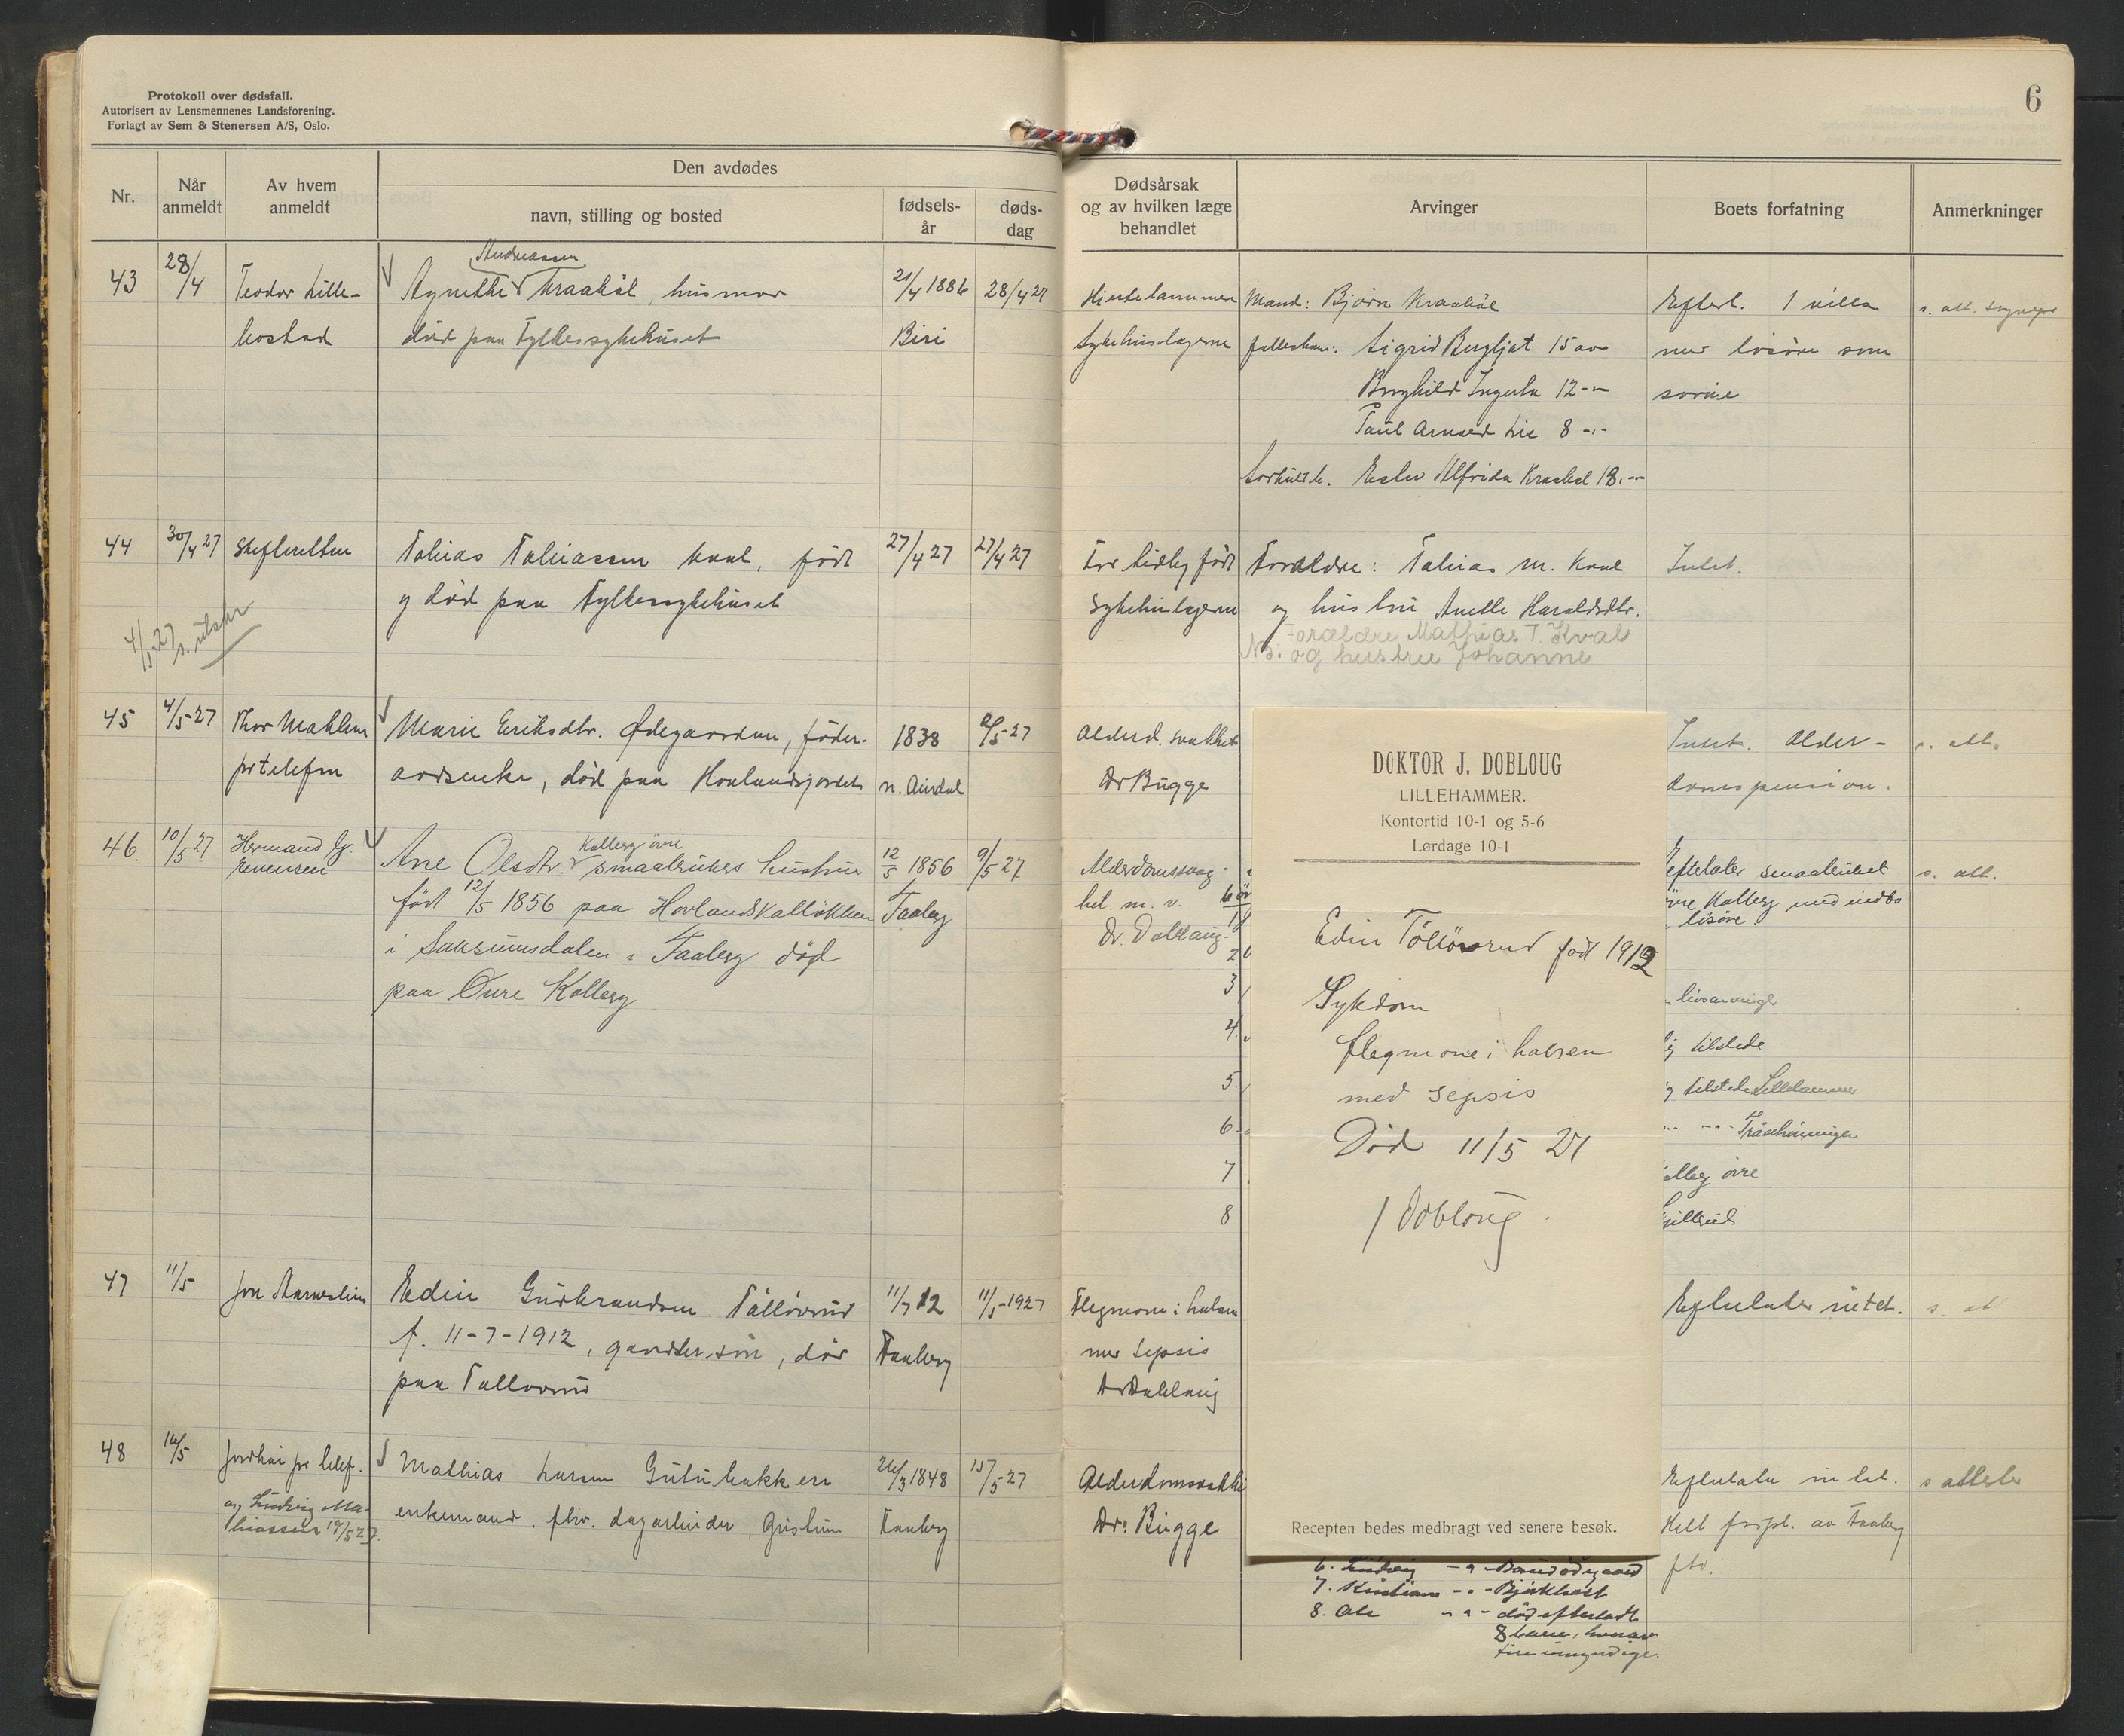 Protokoll over dødsfall.
Autorisert av Lensmennenes Landsforening.
Forlagt av Sem & Stenersen A/S, Oslo.
6
Nr.
Når anmeldt
Av hvem anmeldt
Den avdødes
navn, stilling og bosted
fødsels-år
døds-dag
Dødsårsak
og av hvilken læge
behandlet
Arvinger
Boets forfatning
Anmerkninger
43
28/4
Teodor Lille-
bostad
Andreassen
Agnethe Kraabøl, husmor
død paa Fylkessykehuset
21/4 1886
Biri
28/4 27
Sykehuslægerne
Mand: Bjørn Kraabøl
fællesbarn: Sigrid Bergljot 15 aar
Borghild Ingerda 12 -"-
Paul Arnold Lie 8 -"-
Alfrida Kraabøl 18 -"-
Efterl. 1 villa
med løsøre som
44
30/4 27
Skifteretten
Tobias Tobiassen Kval, født
og død paa Fylkessykehuset
27/4 27
27/4 27
For tidlig født
Sykehuslægerne
Forældre: Tobias M. Kval
og hustru Anette Haraldsdtr.
Forældre Mathias T. Kval
NB: og hustru Johanne
Intet.
4/5 27 s. utskr
45
4/5-27
Thor Mæhlum
pr telefon
Marie Eriksdtr. Ødegaarden, føder-
aadsenke, død paa Hovlandsjordet
1838
n. Aurdal
2/5-27
Alderd. svakhet
Dr Bugge
Intet. Alder-
domspension.
s. att.
46.
10/5 27
Hermand
Evensen
Kalberg øvre
Ane Olsdtr. smaabrukers hustru
født 12/5 1856 paa Hovlandskalløkken
i Saksumsdalen i Faaberg død
paa Øvre Kalberg
12/5 1856
Faaberg
9/5 27
Alderdomssvag-
het m. v.
Dr. Dobloug
1
2
3
4.
5.
6.
7
8
Efterlater smaabruket
øvre Kalberg med indbo
løsøre
s. att.
livsarvinger
tilstede
tilstede Lillehammer
øvre
DOKTOR J. DOBLOUG
LILLEHAMMER.
Kontortid 10-1 og 5-6
Lørdage 10-1
Edin Tølløvsrud født 1912
Sykdom
flegmone i halsen
med sepsis
Død 11/5 27
J Dobloug.
Recepten bedes medbragt ved senere besøk.
47
11/5
Jon Aarneslien
Edin Gudbrandsen Tølløvsrud
f. 11-7-1912, gaardbr. søn, død
paa Tølløvsrud
11/7 12
Faaberg
11/5-1927
Flegmone i halsen
med sepsis
Dr Dobloug
Efterlater intet.
s. at
48
16/5
Jordhøi pr telef.
og Ludvig Ma-
thiassen 19/5 27.
Mathias Larsen Gutubakken
enkemand. fhv. dagarbeider, Gjøslien
26/3 1848
Faaberg
15/5 27
Alderdomssvakhet
Dr. Bugge
Efterlater intet.
Helt forspl. av Faaberg
ftv.
s attester
6. Ludvig -"-
7. Kristian -"- Bjørkhest
8. Ole -"- død efterladt
8 barn, hvorav
fire umyndige.